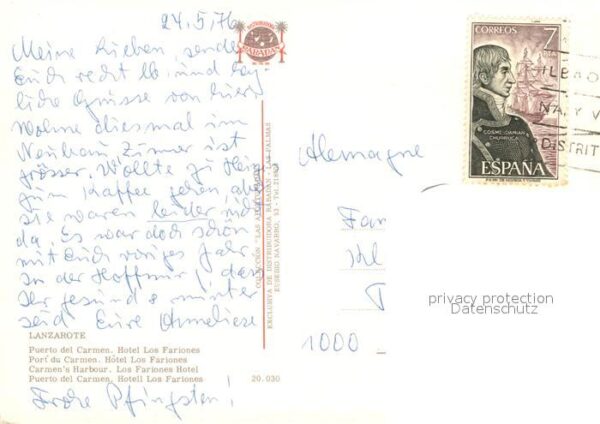 24.5.76
Meine Lieben, sende
Euch recht lb. und herz-
liche Grüsse von hier.
Wohne diesmal im
Neubau, Zimmer ist
grösser. Wollte zu
zum Kaffee gehen, aber
sie waren leider nicht
da. Es war doch schön
mit Euch voriges Jahr.
In der Hoffnung, dass
Ihr gesund & munter
seid Eure Anneliese
LANZAROTE
Puerto del Carmen. Hotel Los Fariones
Port du Carmen. Hôtel Los Fariones
Carmen's Harbour. Los Fariones Hotel
Puerto del Carmen. Hotell Los Fariones
20.030
Frohe Pfingsten!
DISTRIBUIDORA
BABADAN
COLECCION "LAS AFORTUNADAS"
EXCLUSIVA DE DISTRIBUIDORA BABADAN - LAS PALMAS
EUSEBIO NAVARRO, 53
CORREOS 7
PTAS
COSME DAMIAN
CHURRUCA
ESPAÑA
ILBAO
NA, Y V
DISTRIT
Alemagne
Fam
Kl
1000
privacy protection
Datenschutz